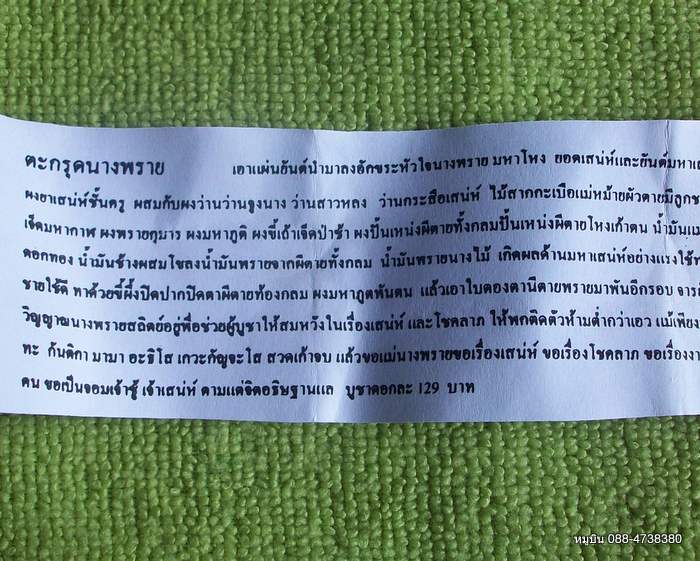 ตะกรุดนางพราย เอาแผ่นยันต์นำมาลงอักขระหัวใจนางพราย มหาโหง ยอดเสน่ห์และยันต์มหาเส
ผงยาเสน่ห์ชั้นครู ผสมกับผงว่านว่านจูงนาง ว่านสาวหลง ว่านกระสือเสน่ห์ ไม้สากกะเบือแม่หม้ายผัวตายมีลูกช
เจ็ดมหากาฬ ผงพรายกุมาร ผงมหาภูติ ผงขี้เถ้าเจ็ดป่าช้า ผงปั้นเหน่งผีตายทั้งกลมปั้นเหน่งผีตายโหงเก้าตน น้ำมันแม
ดอกทอง น้ำมันช้างผสมโขลงน้ำมันพรายจากผีตายทั้งกลม น้ำมันพรายนางไม้ เกิดผลด้านมหาเสน่ห์อย่างแรงใช้
ชายใช้ดี ทาด้วยขี้ผึ้งปิดปากปิดตาผีตายท้องกลม ผงมหาภูตพันตน แล้วเอาใบตองตานีตายพรายมาพันอีกรอบ จาร
วิญญาณนางพรายสถิตย์อยู่พื่อช่วยผู้บูชาให้สมหวังในเรื่องเสน่ห์ และโชคลาภ ให้พกติดตัวห้ามต่ำกว่าเอว แม้เพียง
ทะ กันติกา มามา อะธิโส เกวะกัญจะโส สวดเก้าจบ แล้วขอแม่นางพรายขอเรื่องเสน่ห์ ขอเรื่องโชคลาภ ขอเรื่องงา
คน ขอเป็นจอมเจ้าชู้ เจ้าเสน่ห์ ตามแต่จิตอธิษฐานแล บูชาดอกละ 129 บาท
หมูบิน 088-4738380